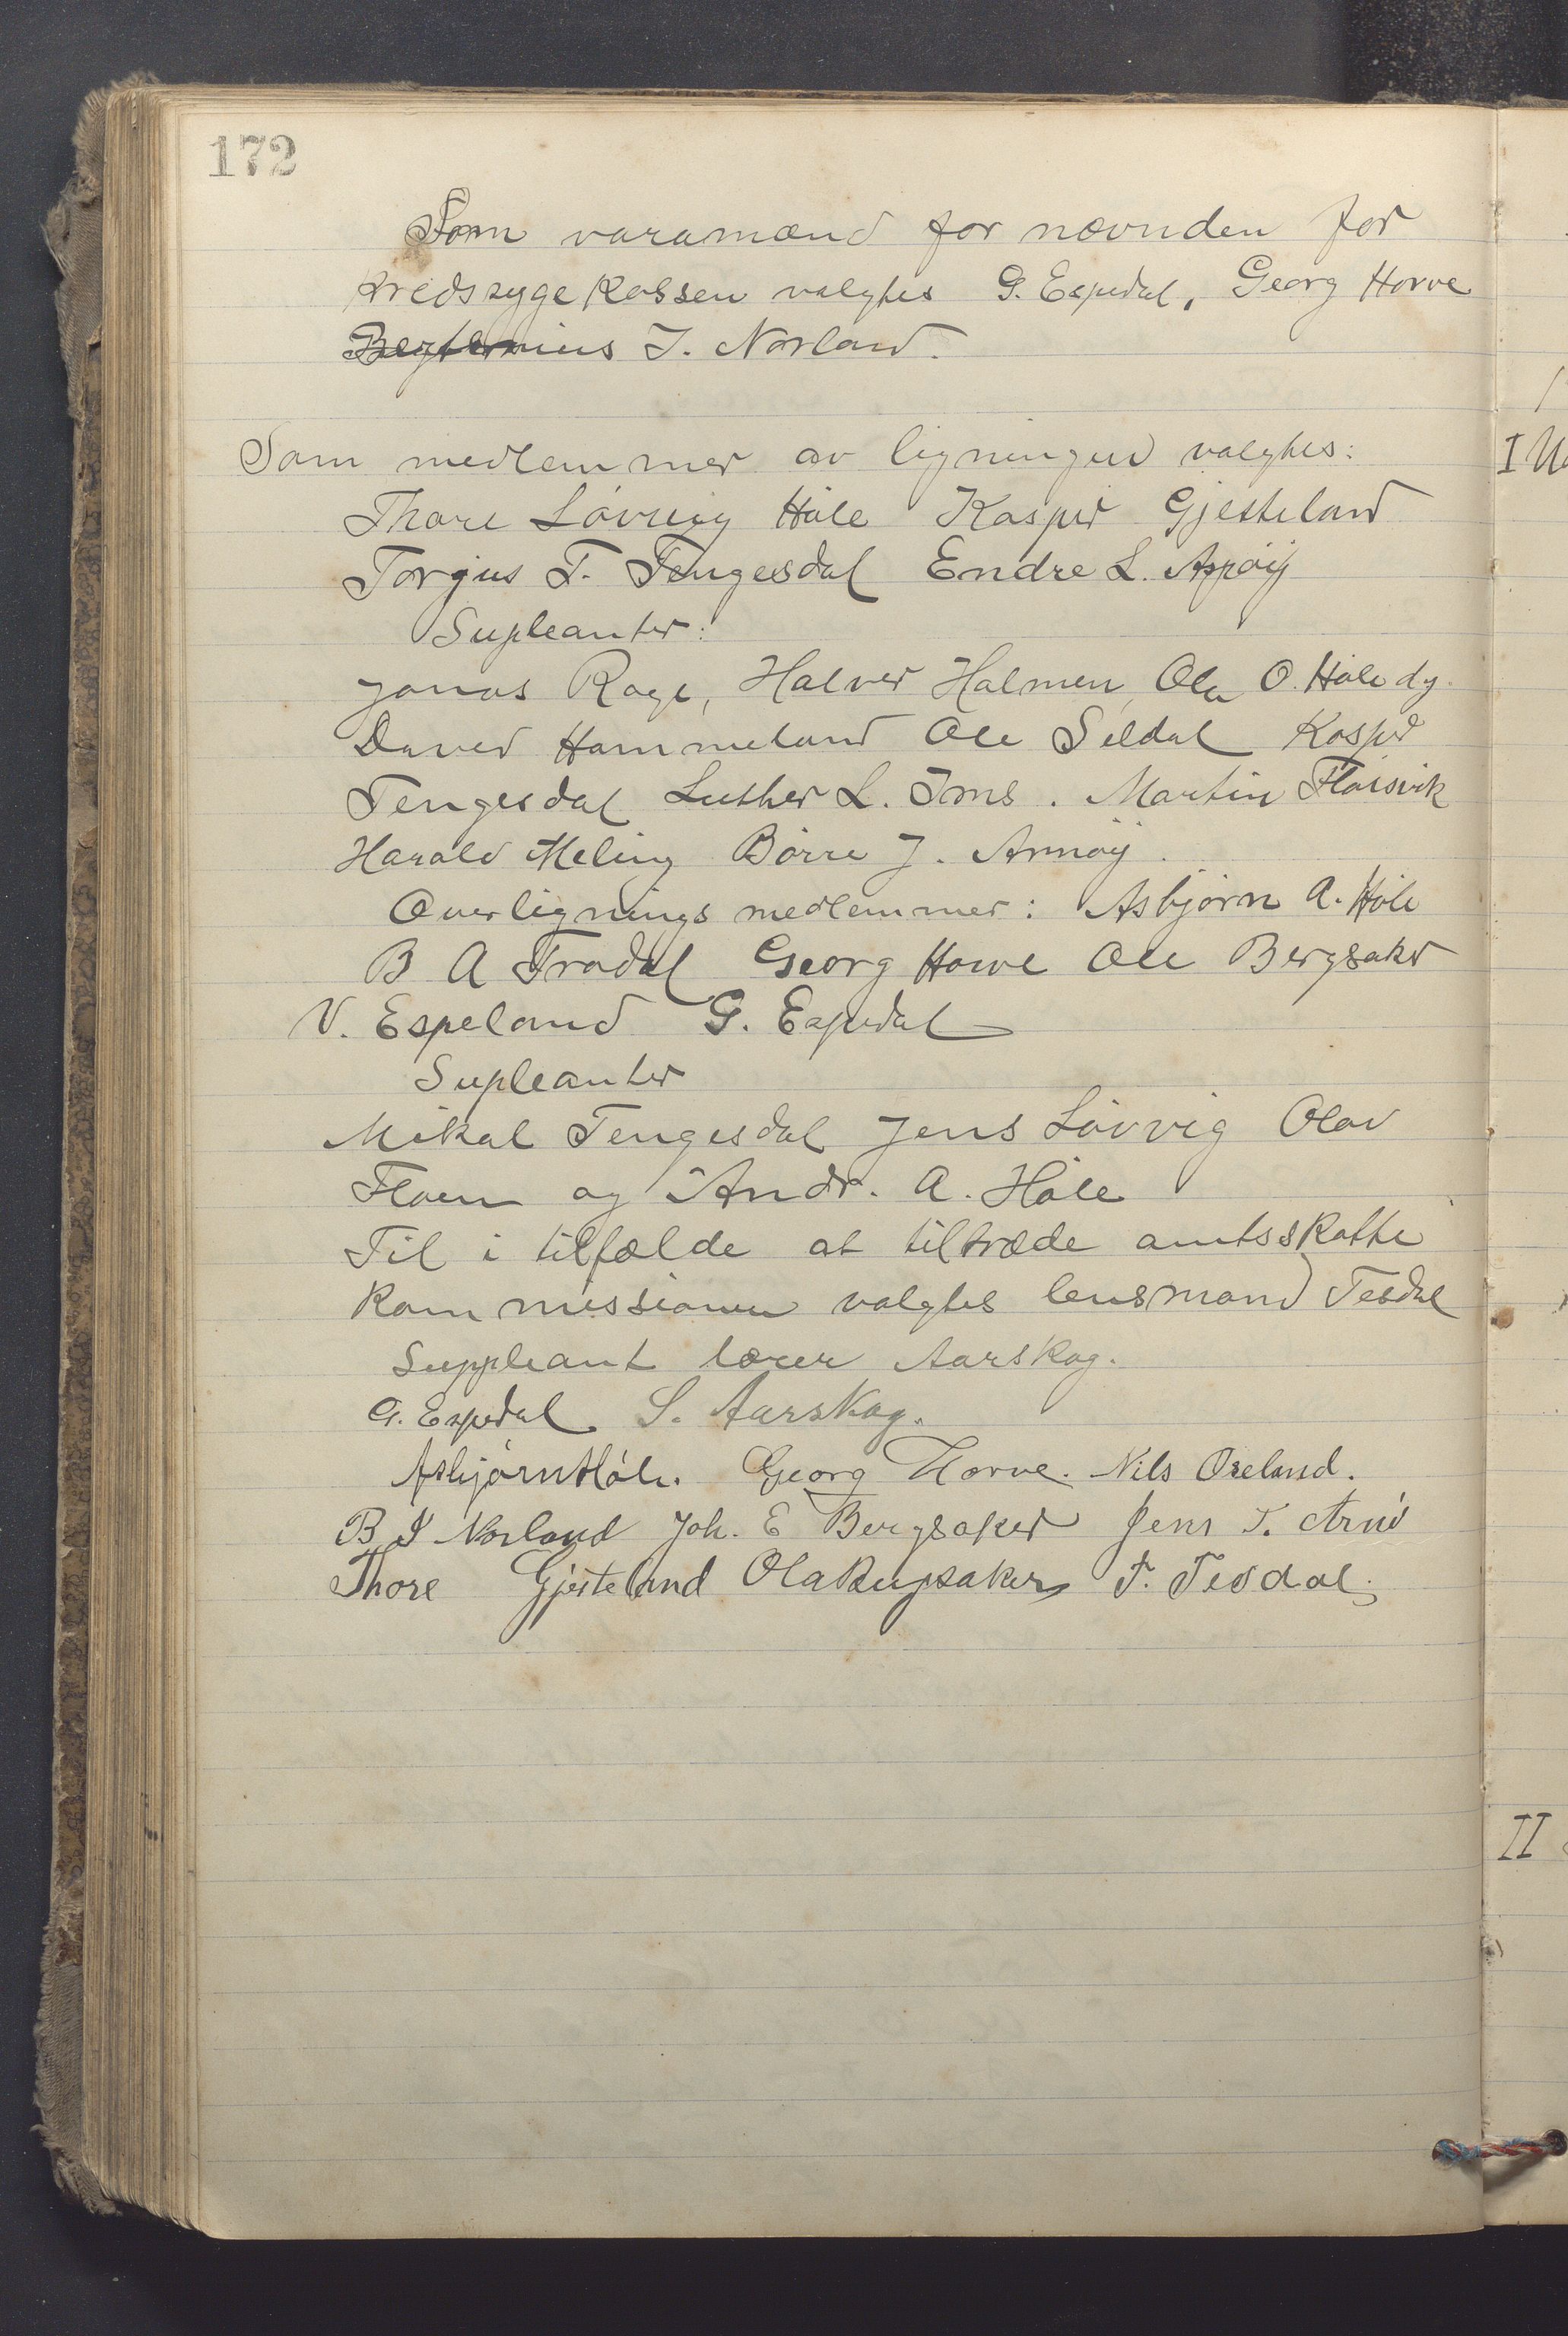 172
Som varamænd for nævnden for
kredssygekassen valgtes G. Espedal, Georg Horve
Bergtenius I. Norland.
Som medlemmer av ligningen valgtes:
Thore Løvvig Høle Kasper Gjesteland
Torgius T. Tengesdal Endre L. Apøy
Supleanter:
Jonas Rage, Halver Halmen, Ola O. Høle dy.
David Hommeland Ole Seldal Kasper
Tengesdal Luther L. Ims. Martin Fløisvik
Harald Meling Børre J. Amøy.
Overlignings medlemmer: Asbjørn A. Høle
B A Fradal Georg Horve Ole Bergsaker
V. Espeland G. Espedal
Supleanter
Mikal Tengesdal Jens Løvvig Olav
Floen og Andr. A. Høle
Til i tilfælde at tiltræde amtsskatte
kommissionen valgtes lensmand Tesdal
Suppleant lærer Aarskog.
G. Espedal S. Aarskog.
Asbjørn Høle. Georg Horve. Nils Oseland.
B I Norland Joh. E Bergsaker Jens T.
Thore Gjesteland Ola Bergsaker T. Tesdal.
I
II